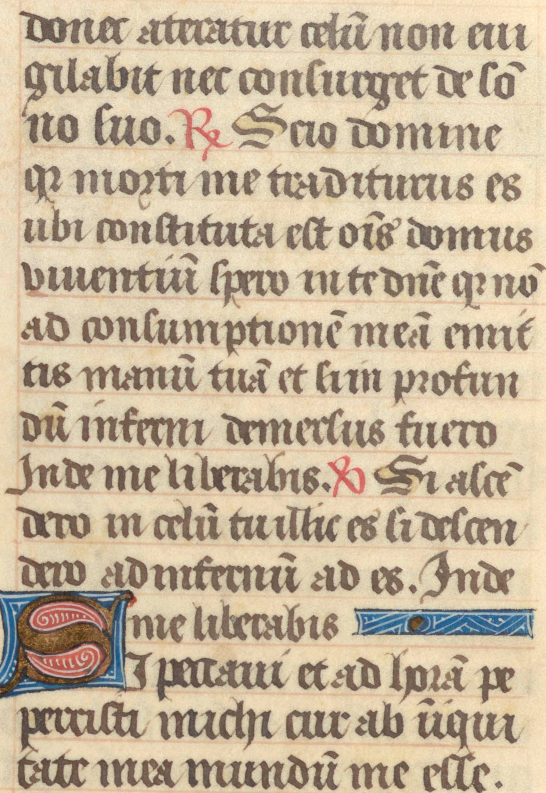 donec ateratur celū non eui
gilabit nec consurget de sō
no suo. ℞ Scio domine
qꝛ morti me traditurus es
ubi constituta est oīs domus
viuentiū spero in te dn̄e qꝛ nō
ad consumptionē meā emit
tis manū tuā et si in profun
dū inferni demersus fuero
Inde me liberabis. ℣ Si ascē
dero in celū tu illic es si descen
dero ad infernū ad es. Inde
me liberabis
SI peccaui et ad horā pe
percisti michi cur ab īiqui
tate mea mundū me esse.